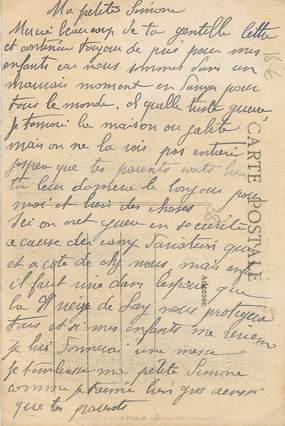 Ma petite Simone
Merci beaucoup de ta gentille lettre
et continue toujour de prié pour mes
enfants car nous sommes dans un
mauvais moment en danger pour
tous le monde. et quelle triste guerre
je tourné la maison ou jabite
mais on ne la vois pas entière
jespère que tes parents vonts bien
tu leur donnera le bonjour pour
moi et bien des choses
ici on ait guère en securité
a cause des camp
et a coté de chez nous, mais enfin
il faut vivre dans lespoir que
la Vierge de nous protegera
tous et si mes enfants me revienne
je lui donnerai une messe
je tembrasse ma petite Simone
comme je taime bien gros ainsi
que tes parents
CARTE POSTALE
Adresse